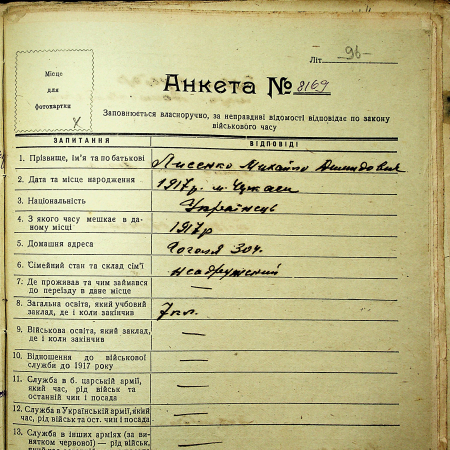 Літ. -96-
Місце
для
фотокартки
Анкета № 8169
Заповнюється власноручно, за неправдиві відомості відповідає по закону
військового часу
ЗАПИТАННЯ ВІДПОВІДІ
1. Прізвище, ім'я та по батькові Лисенко Михайло
2. Дата та місце народження 1917р. м.
3. Національність Українець
4. З якого часу мешкає в да-
ному місці 1917р
5. Домашня адреса Гоголя 304.
6. Сімейний стан та склад сім'ї
7. Де проживав та чим займався
до переїзду в дане місце —
8. Загальна освіта, який учбовий
заклад, де і коли закінчив 7кл.
9. Військова освіта, який заклад,
де і коли закінчив —
10. Відношення до військової
служби до 1917 року —
11. Служба в б. царській армії,
який час, рід військ та
останній чин і посада —
12. Служба в Українській армії, який
час, рід військ та ост. чин і посада —
13. Служба в інших арміях (за ви-
нятком червоної) — рід військ, —